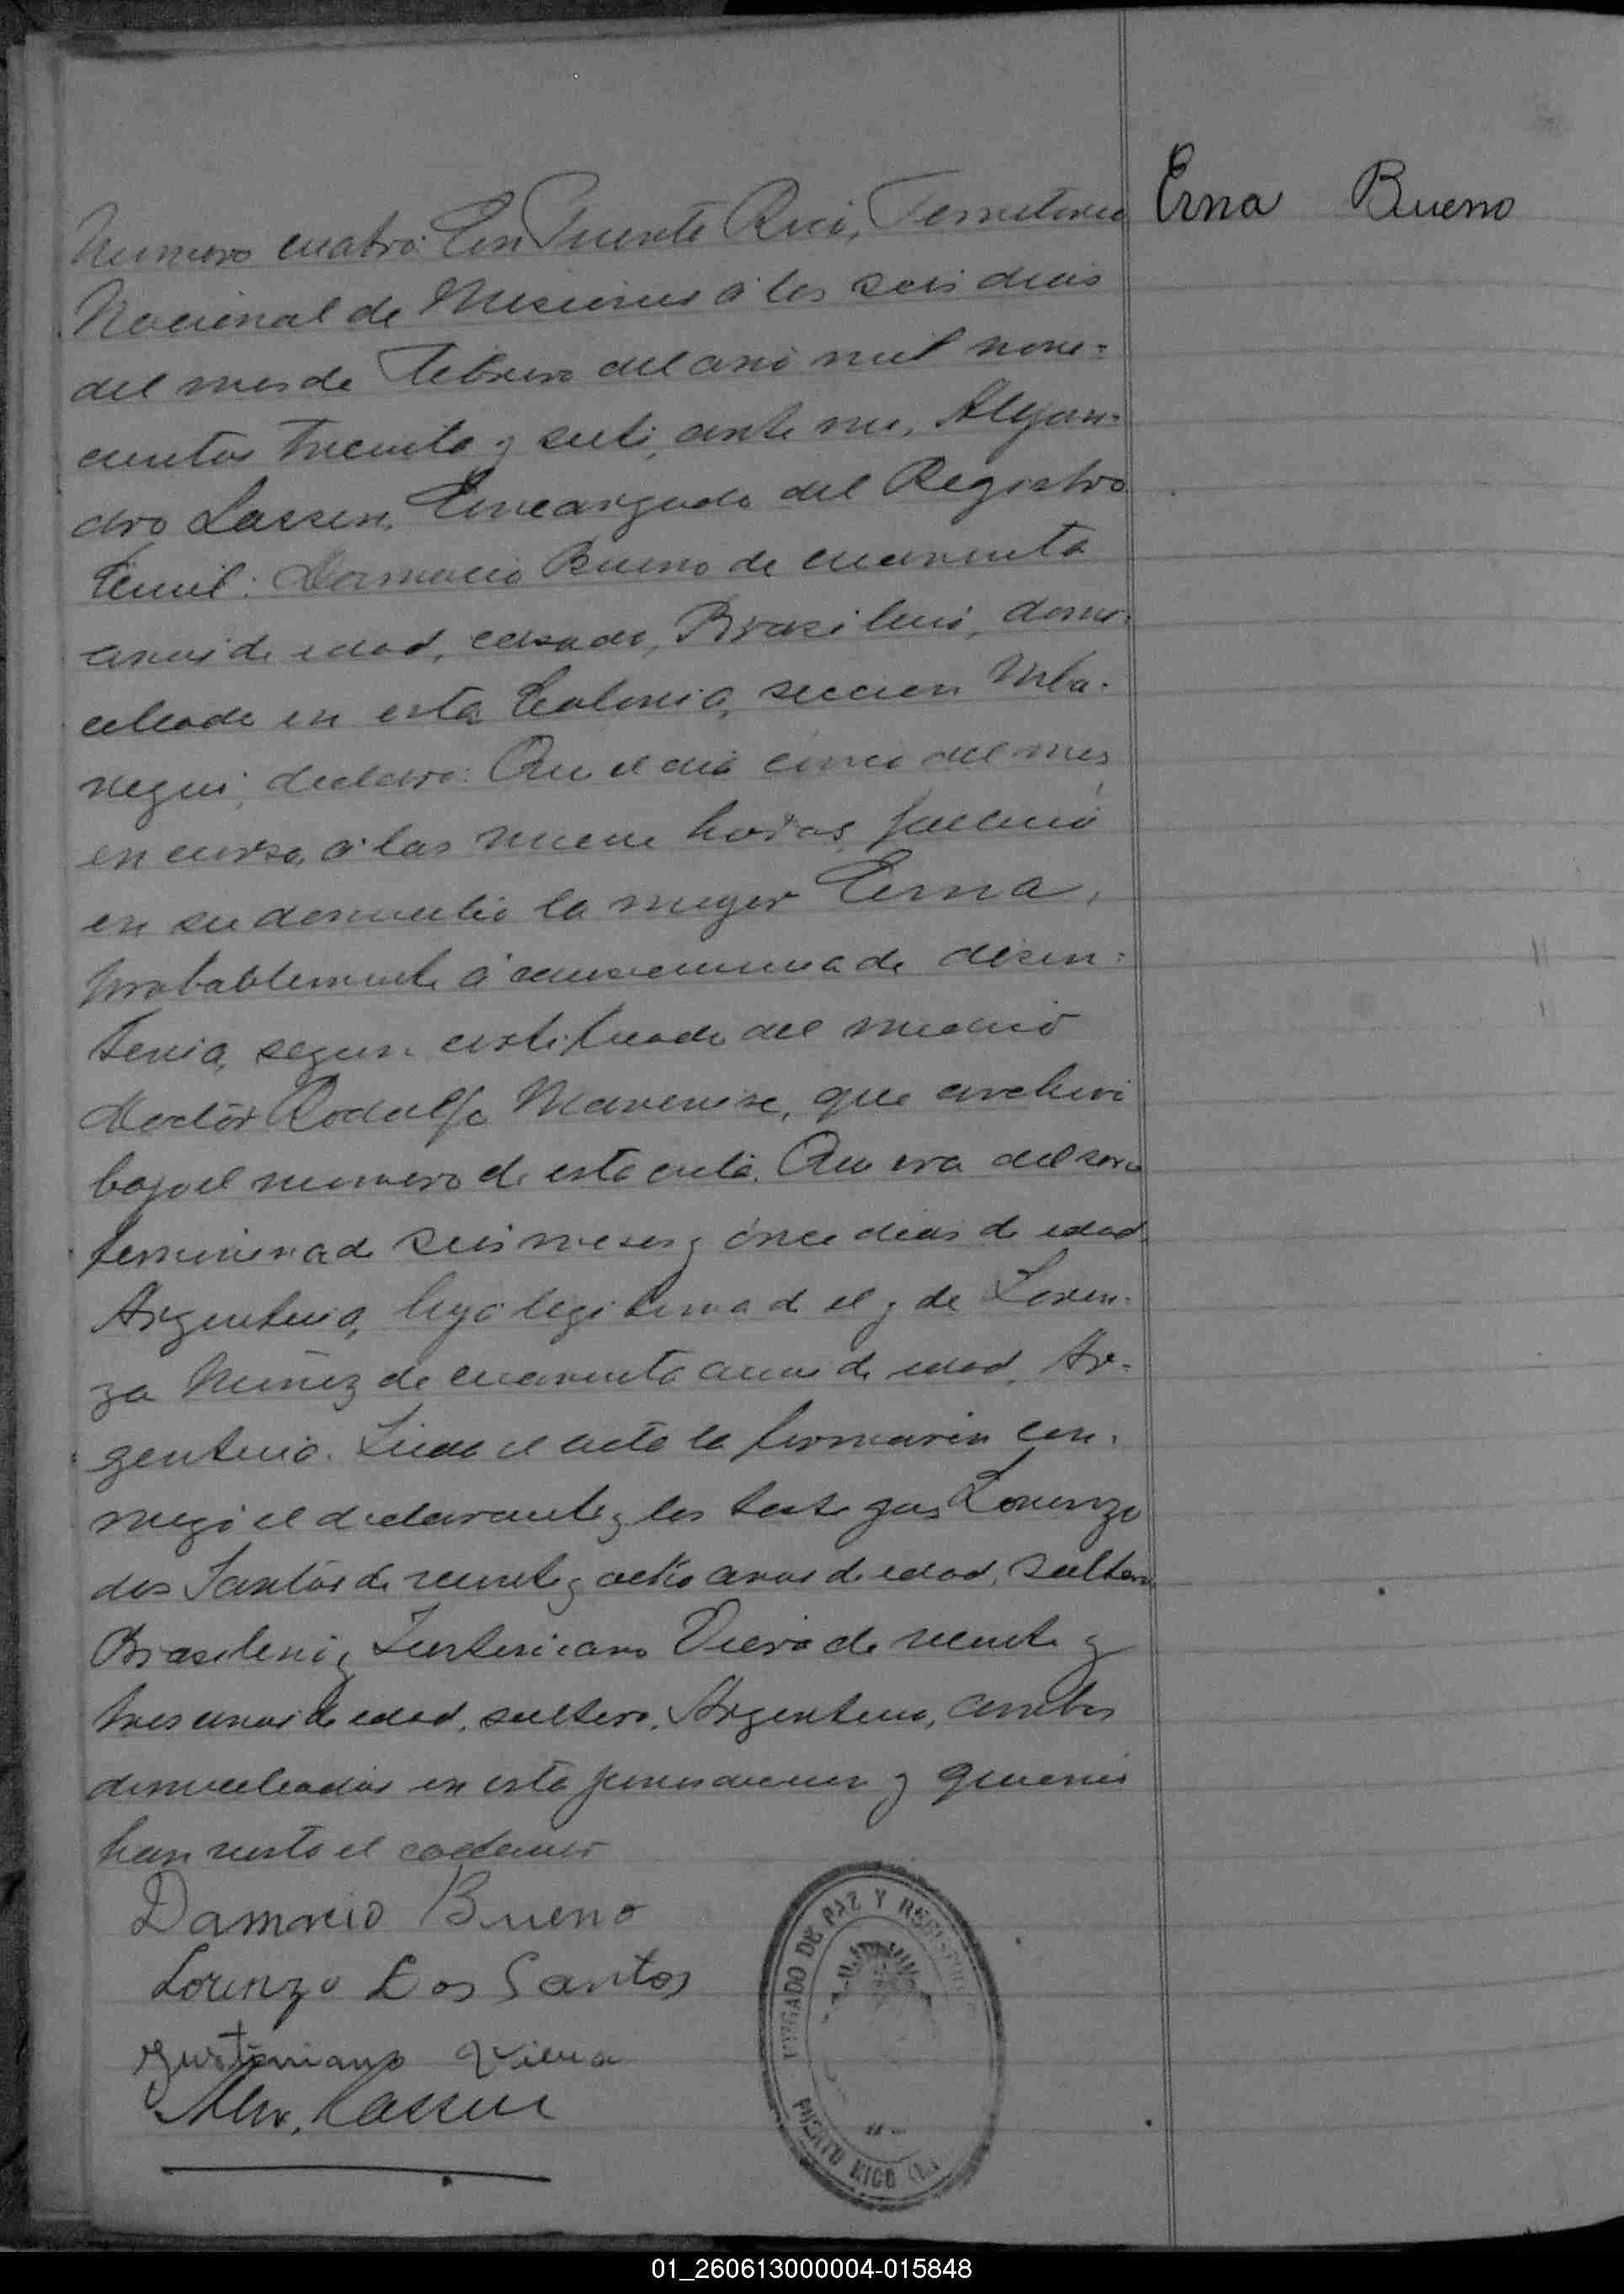 Erna Bueno
Numero cuatro: En Puerto Rico, Territorio
Nacional de Misiones á los seis dias
del mes de Febrero del año mil nove=
cientos treinta y siete, ante mi, Alejan=
dro Lassen, Encargado del Registro
Civil: Damacio Bueno de cuarenta
anos de edad, casado, Brasileno, domi=
ciliado en esta Colonia, seccion Mba=
negui, declaro: Que el dia cinco del mes
en curso, á las nueve horas, fallecio
en su domicilio la mujer Erna,
probablemente á consecuencia de disen=
teria, segun certificado del medico
doctor Rodolfo que archivo
bajo el numero de esta acta. Que era del sexo
femenino de seis meses y once dias de edad,
Argentina, hija legitima de el y de Loren=
za Nuñez de cuarenta anos de edad, Ar=
gentina. Leida el acta la firmaron con=
migo el declarante y los testigos Lorenzo
dos Santos de veinte y ocho anos de edad, soltero
Brasileno y Justiniano Viera de veinte y
tres anos de edad, soltero, Argentino, ambos
domiciliados en esta jurisdiccion y quienes
han visto el cadaver
Damacio Bueno
Lorenzo Dos Santos
Justiniano Viera
Alex. Lassen
JUZGADO DE PAZ Y REGISTRO
PUERTO RICO
01_260613000004-015848